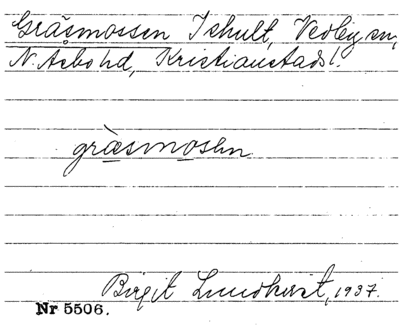 Gräsmossen Ishult, Vedby sn,
N. Åsbo hd, Kristianstads l.
gràsmosen
Birgit Lundkvist, 1937.
Nr 5506.